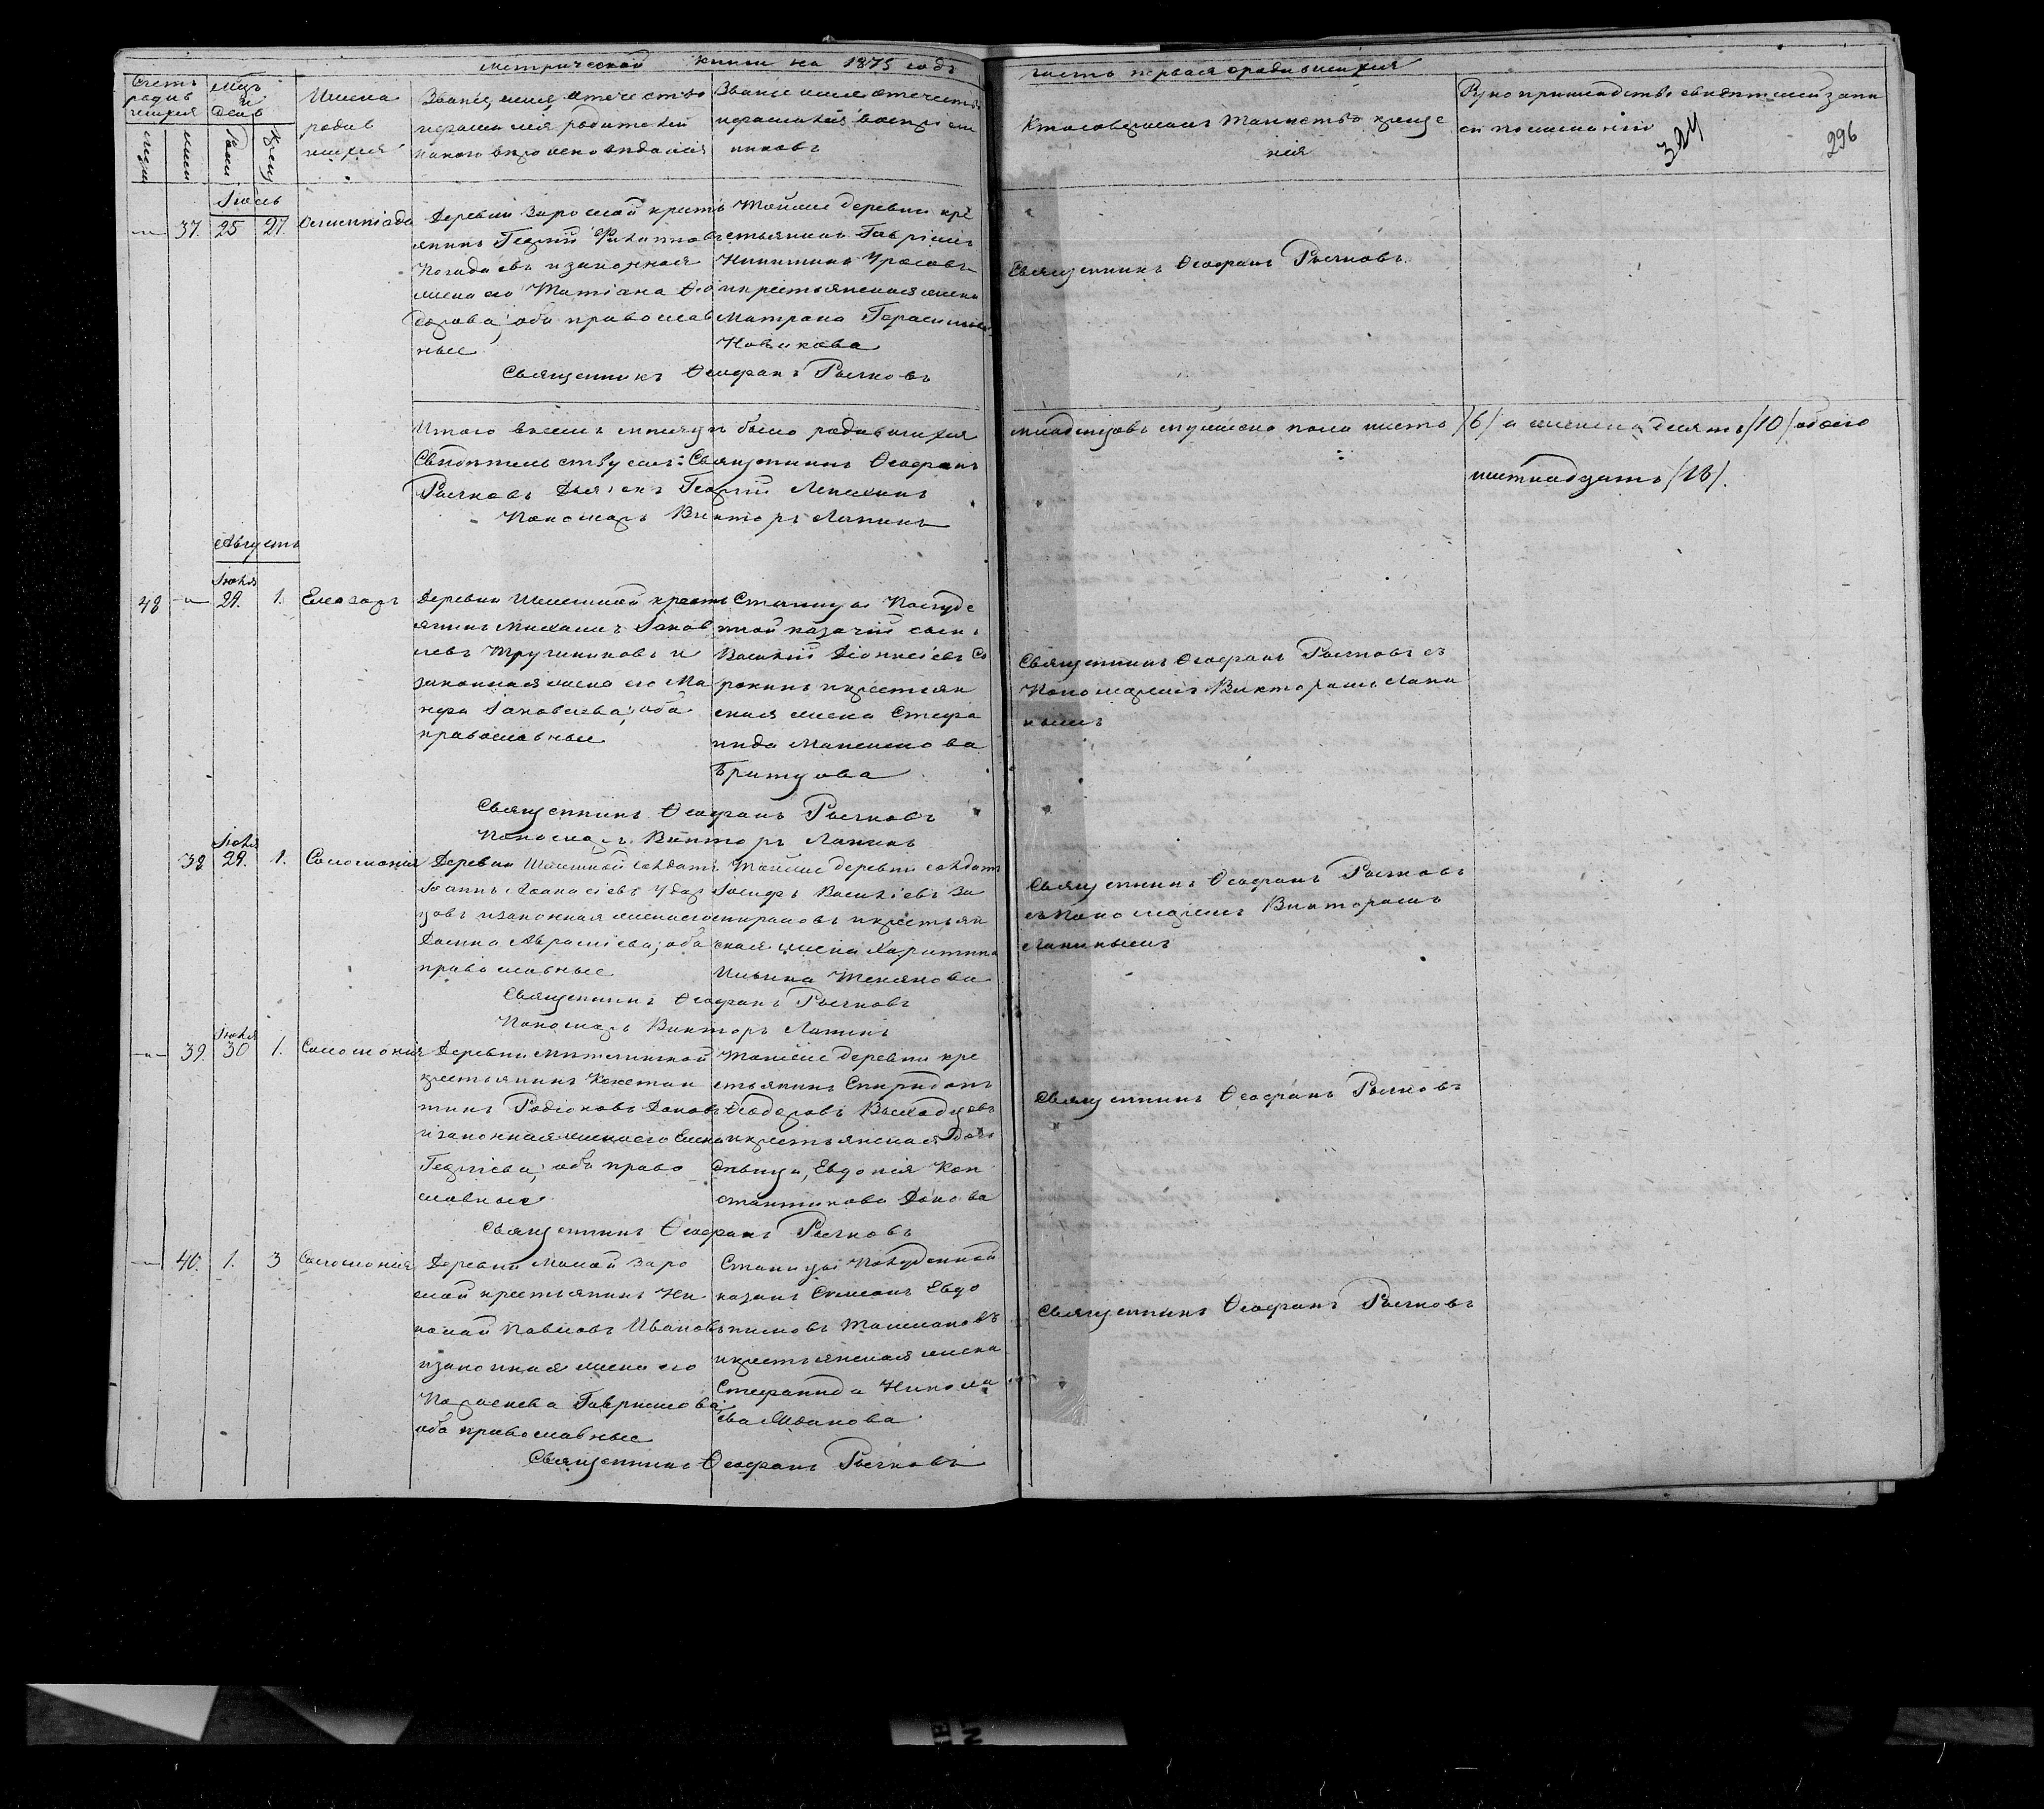 Метрической книги на 1875 годъ
часть первая о родившихся
Счетъ родив
шихся
Мѣсъ
и
день
Имена
родив
шихся
Званіе, имя, отечество
и фамилія родителей
и какого вѣроисповѣданія
Званіе имя отечество
и фамилія воспріем
никовъ
Кто совершалъ таинство креще
нія
Рукоприкладство свидѣтелей запи
си по желанію
324
296
Іюль
37. 25 27. Олимпіада
Деревни Заросл­ой кресть
янинъ Георгій Филипповъ
и законная
жена его Татіана Ѳео
дорова; оба православ
ные
Той же деревни кре
стьянинъ Гавріилъ
Никитинъ
и крестьянская жена
Матрона Герасимова
Новикова
Священникъ Ѳеофанъ Рычковъ
Священникъ Ѳеофанъ Рычковъ.
Итого въ іюлѣ мѣсяцѣ было родившихся
младенцовъ мужеска пола шесть /6/ а женска десять /10/ обоего
шестнадцать /16/.
Свидѣтельствуемъ: Священникъ Ѳеофанъ
Рычковъ Діаконъ Георгій
Пономарь Викторъ Лапинъ
Августъ
Іюля
48 29. 1. Елеазаръ
Деревни крестъ
янинъ Михаилъ Іаков
левъ Трушниковъ и
законная жена его Ма
Іаковлева; оба
православные
Станицы
казачій сынъ
Василій Діонисіевъ Со
рокинъ и крестьян
ская жена Стефа
нида Максимова
Бритцова
Священникъ Ѳеофанъ Рычковъ съ
Пономаремъ Викторомъ Лапи
нымъ
Священникъ Ѳеофанъ Рычковъ
Пономарь Викторъ Лапинъ
Іюля
38 29. 1. Соломонія
Деревни солдатъ
Іоаннъ Аѳанасіевъ Удар
цовъ и законная жена его
Домна Авраміева; оба
православные
Той же деревни солдатъ
Іосифъ Василіевъ За
и крестьян
ская жена Харитина
Ильина
Священникъ Ѳеофанъ Рычковъ
съ Пономаремъ Викторомъ
Лапинымъ
Священникъ Ѳеофанъ Рычковъ
Пономарь Викторъ Лапинъ
Іюля
39. 30 1. Соломонія
Деревни
крестьянинъ Констан
тинъ Родіоновъ
и законная жена его Елена
Георгіева; оба право
славные
Той же деревни кре
стьянинъ Спиридонъ
Ѳеодоровъ Выходцовъ
и крестьянская дочь
дѣвица, Евдокія Кон
стантинова
Священникъ Ѳеофанъ Рычковъ
Священникъ Ѳеофанъ Рычковъ
40. 1. 3 Соломонія
Деревни Малой Заро
слой крестьянинъ Ни
колай Павловъ Ивановъ
и законная жена его
Параскева Гавриилова
оба православные
Станицы
казакъ Симеонъ Евдо
кимовъ
и крестьянская жена
Стефанида Никола
ева Иванова
Священникъ Ѳеофанъ Рычковъ
Священникъ Ѳеофанъ Рычковъ